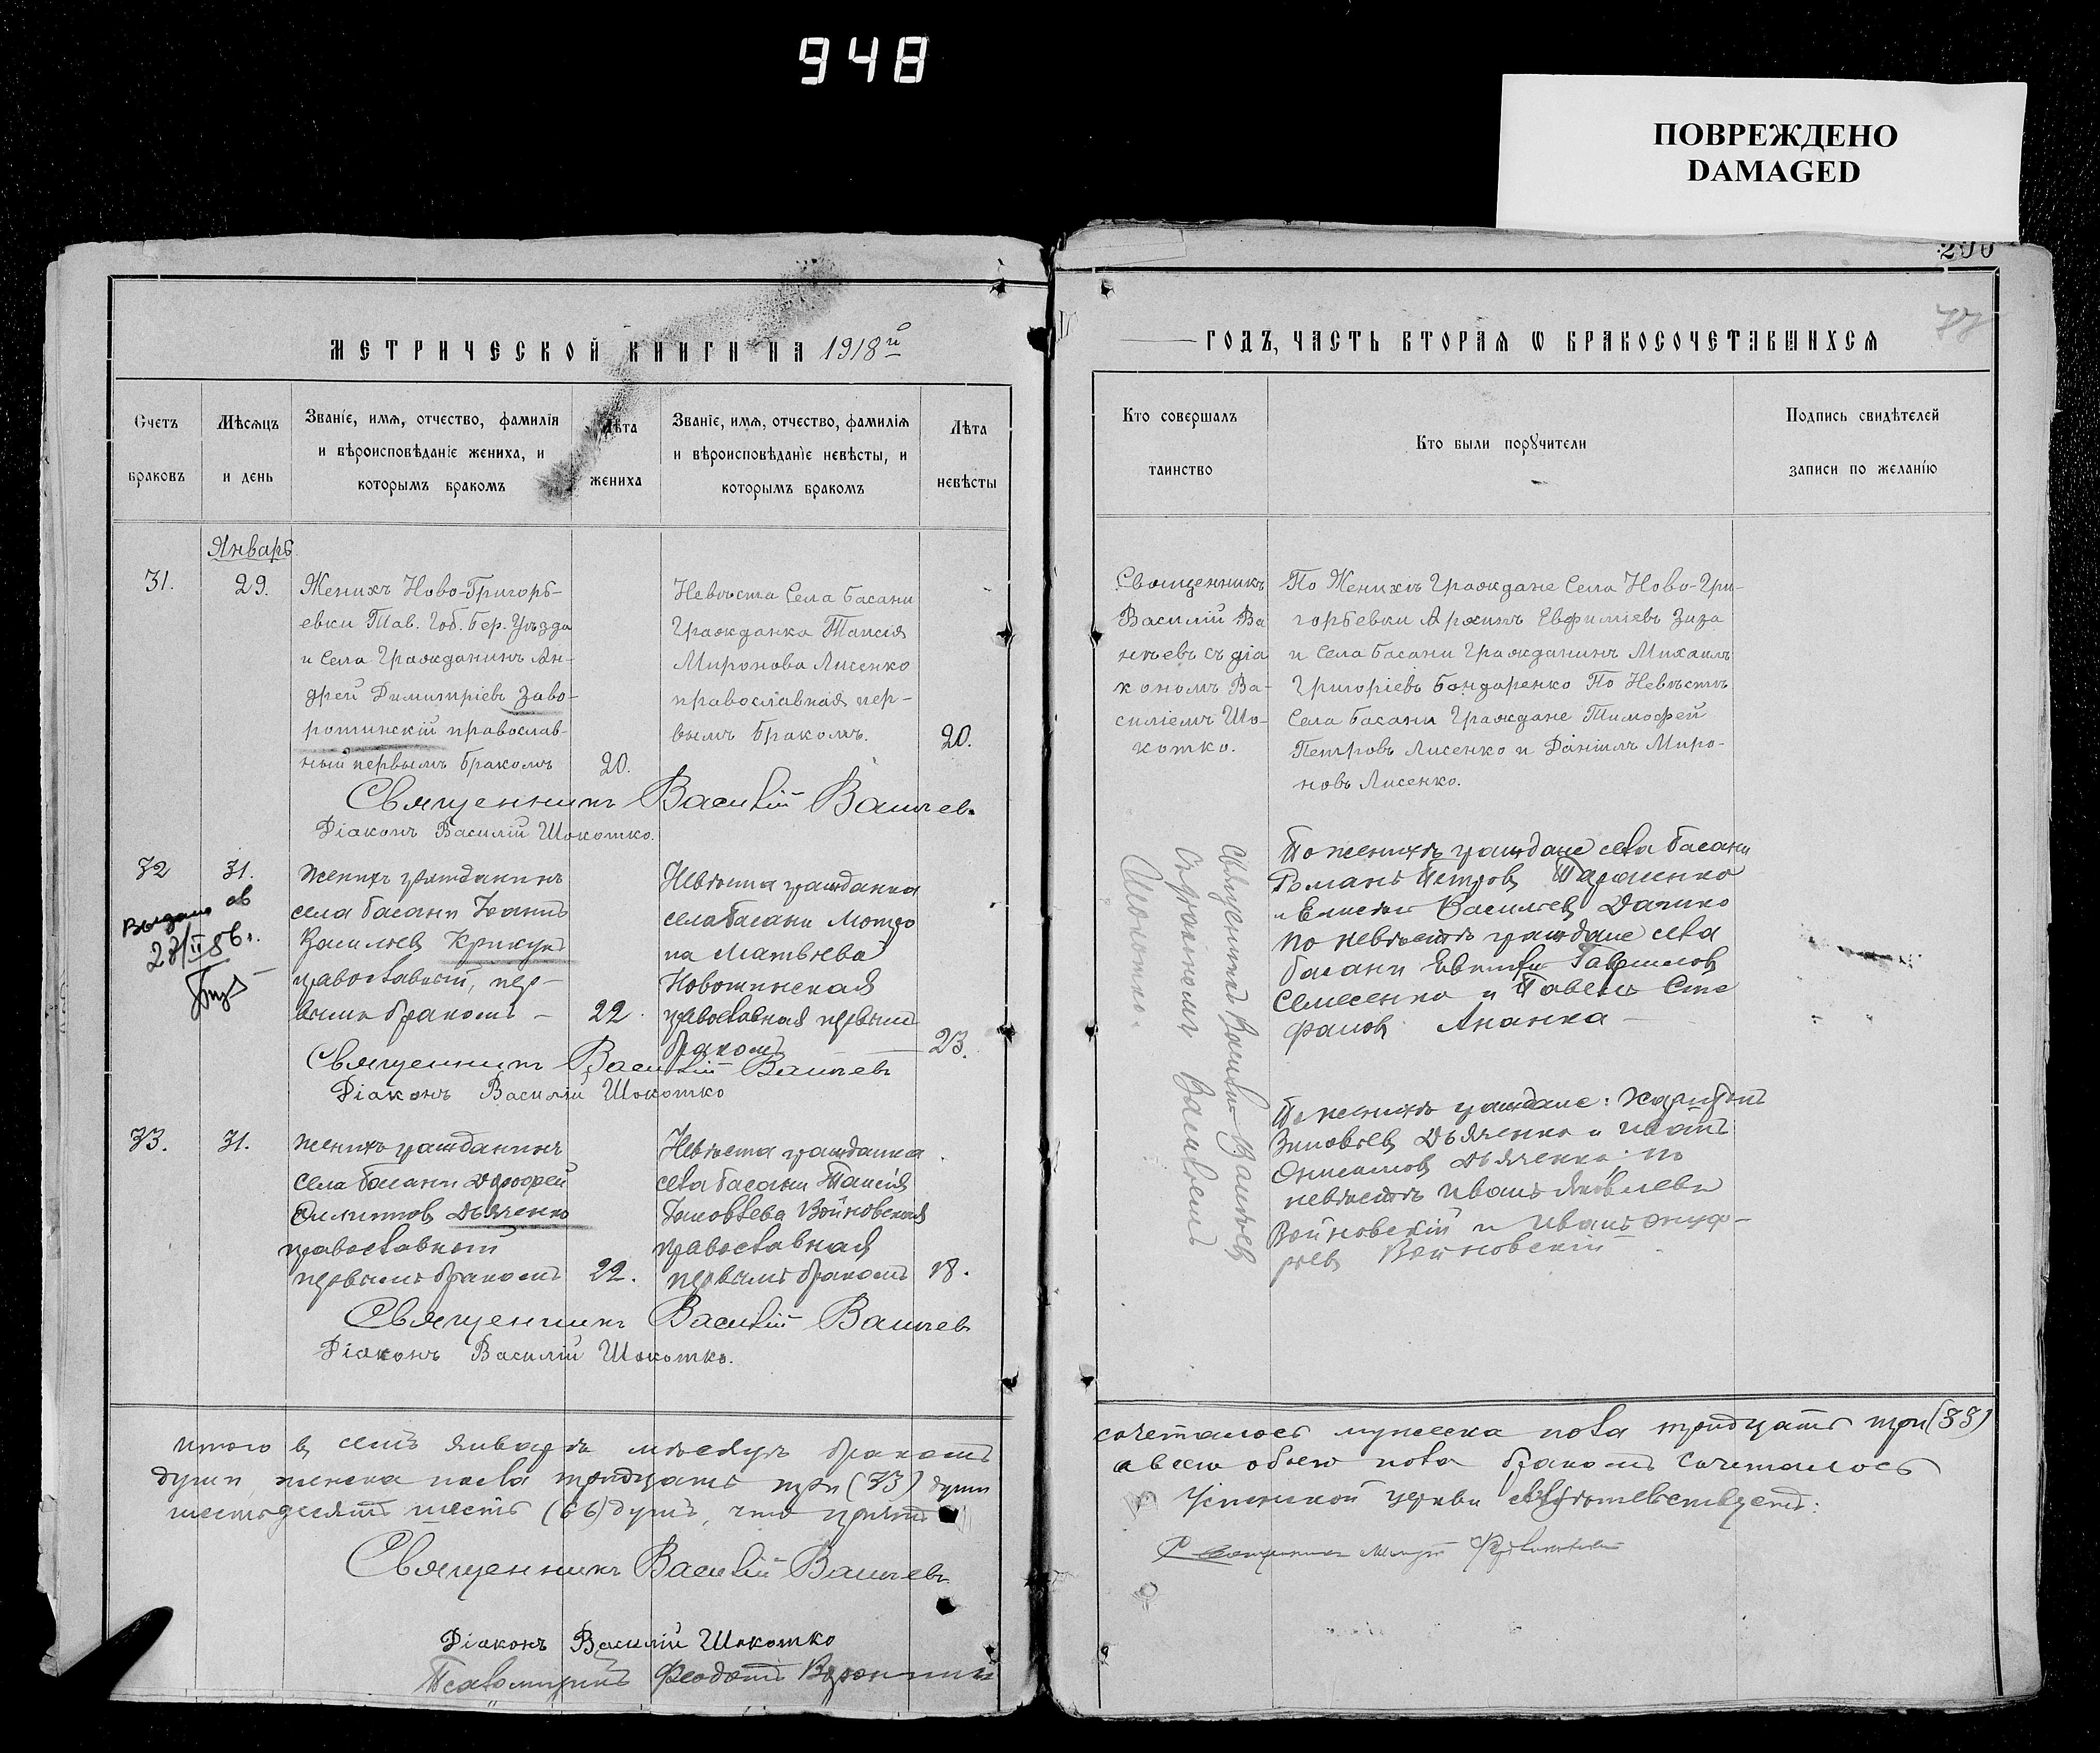 948
ПОВРЕЖДЕНО
DAMAGED
290
МЕТРИЧЕСКОЙ КНИГИ НА 1918й
ГОДЪ, ЧАСТЬ ВТОРАЯ Ѡ БРАКОСОЧЕТАВШИХСЯ
77
Счетъ браковъ
Мѣсяцъ и день
Званіе, имя, отчество, фамилія
и вѣроисповѣданіе жениха, и
которымъ бракомъ
Лѣта жениха
Званіе, имя, отчество, фамилія
и вѣроисповѣданіе невѣсты, и
которымъ бракомъ
Лѣта невѣсты
Кто совершалъ таинство
Кто были порꙋчители
Подпись свидѣтелей
записи по желанію
Январь
31.
29.
Женихъ Ново-Григорь-
евки Тав. Губ. Бер. Уѣзда
и Села Гражданинъ Ан-
дрей Димитріевъ Заво-
ротинскій православ-
ный первымъ бракомъ
20.
Невѣста Села Басани
Гражданка Таисія
Миронова Лисенко
православная пер-
вымъ бракомъ.
20.
Священникъ
Василій Ва
нчевъ съ діа
кономъ Ва-
силіемъ Шо-
котко.
По Женихѣ Граждане Села Ново-Гри-
горьевки Архипъ Евфиміевъ Зиза
и Села Басани Гражданинъ Михаилъ
Григоріевъ Бондаренко По Невѣстѣ
Села Басани Граждане Тимофей
Петровъ Лисенко и Даніилъ Миро-
новъ Лисенко.
Священникъ Василій Ванчевъ
Діаконъ Василій Шокотко.
32
31.
Выдано св
28/II 86г.
Женихъ гражданинъ
села Басани Іоаннъ
Васильевъ Крикунъ
православный, пер-
вымъ бракомъ —
22.
Невѣста гражданка
села Басани Мотро
на Матвѣева
Новотинская
православная первымъ
бракомъ
23.
Священникъ Василій Ванчевъ
съ діакономъ Василіемъ
Шокотко.
По женихѣ граждане села Басани
Романъ Петровъ Тараненко
и Василіевъ Данико
по невѣстѣ граждане села
Басани Гавриловъ
Семесенко и Павелъ Сте
фановъ Ананка —
Священникъ Василій Ванчевъ
Діаконъ Василій Шокотко
33.
31.
Женихъ гражданинъ
села Басани Дорофей
Филиповъ Дьяченко
православный
первымъ бракомъ
22.
Невѣста гражданка
села Басани Таисія
Іаковлева Войновская
православная
первымъ бракомъ
18.
По женихѣ граждане: Харитонъ
Зиновьевъ Дьяченко и Иванъ
Онисимовъ Дьяченко; по
невѣстѣ Иванъ Яковлевъ
Войновскій и Иванъ Онуф-
ріевъ Войновскій
Священникъ Василій Ванчевъ
Діаконъ Василій Шокотко.
Итого въ семъ Январѣ мѣсяцѣ бракомъ
сочеталось мужеска пола тридцать три (33)
души, женска пола тридцать три (33) души
а всего обоего пола бракомъ сочеталось
шестьдесятъ шесть (66) душъ, что причтъ
Успенской церкви свидѣтельствуетъ:
Священникъ Василій Ванчевъ
Діаконъ Василій Шокотко
Псаломщикъ Феодотъ